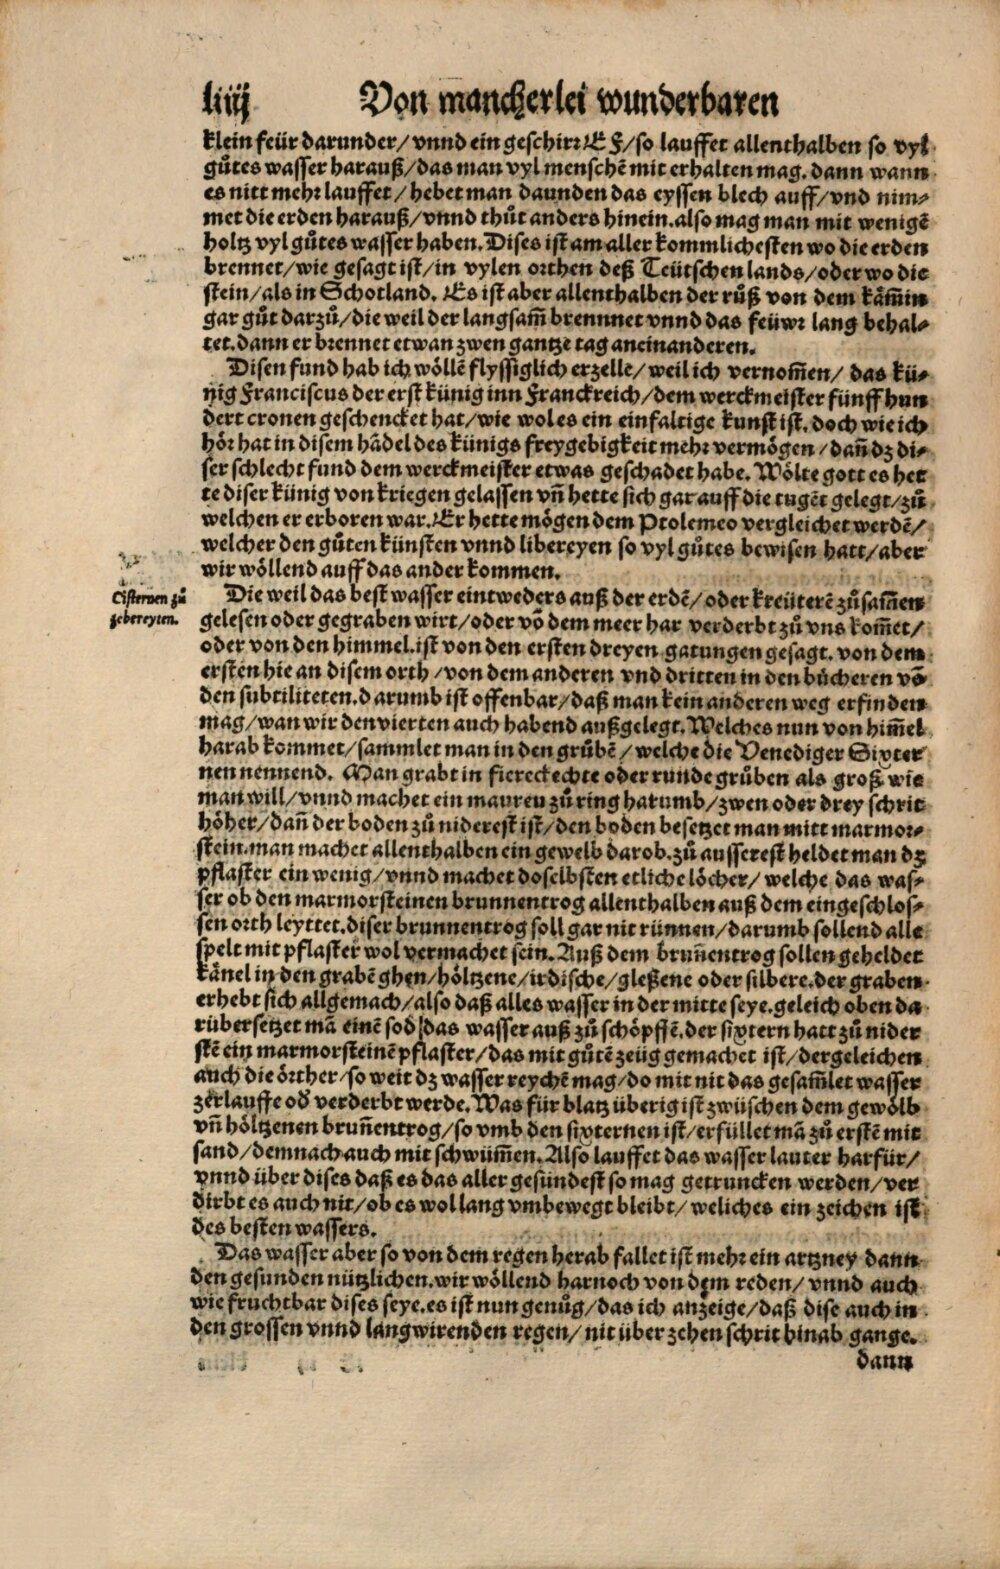 liiij Von mancherlei wunderbaren
klein feür darunder/ vnnd ein geschirr E F/ so lauffet allenthalben so vyl
gůtes wasser harauß/ das man vyl menschẽ mit erhalten mag. dann wann
es nitt mehr lauffet/ hebet man daunden das eyssen blech auff/ vnd nim⸗
met die erden harauß/ vnnd thůt anders hinein. also mag man mit wenigẽ
holtz vyl gůtes wasser haben. Dises ist am aller kommlichesten wo die erden
brennet/ wie gesagt ist/ in vylen orthen deß Teütschen lands/ oder wo die
stein/ als in Schotland. Es ist aber allenthalben der růß von dem kåm̃in
gar gůt darzů/ die weil der langsam̃ brennnet vnnd das feüwr lang behal⸗
tet. dann er brennet etwan zwen gantze tag aneinanderen.
Disen fund hab ich wöllẽ flyssiglich erzelle/ weil ich vernom̃en/ das kü⸗
nig Franciscus der erst künig inn Franckreich/ dem werckmeister fünff hun
dert cronen geschencket hat/ wie wol es ein einfaltige kunst ist. doch wie ich
hör hat in disem hãdel des künigs freygebigkeit mehr vermögen/ dañ dz di⸗
ser schlecht fund dem werckmeister etwas geschadet habe. Wölte gott es het
te diser künig von kriegen gelassen vñ hette sich gar auff die tugẽt gelegt/ zů
welchen er erboren war. Er hette mögen dem Ptolemeo vergleichet werdẽ/
welcher den gůten künsten vnnd libereyen so vyl gůtes bewisen hatt/ aber
wir wöllend auff das ander kommen.
Cisternen zů
zebereyten.
Die weil das best wasser eintweders auß der erdẽ/ oder kreüterẽ zůsam̃en
gelesen oder gegraben wirt/ oder võ dem meer har verderbt zů vns kom̃et/
oder von den himmel. ist von den ersten dreyen gatungen gesagt. von dem
ersten hie an disem orth/ von dem anderen vnd dritten in den bücheren võ
den subtiliteten. darumb ist offenbar/ daß man kein anderen weg erfinden
mag/ wan wir den vierten auch habend außgelegt. Welches nun von him̃el
harab kommet/ sammlet man in den grůbẽ/ welche die Venediger Sixter
nen nennend. Man grabt in fiereckechte oder runde grůben als groß wie
man will/ vnnd machet ein mauren zů ring harumb/ zwen oder drey schrit
höher/ dañ der boden zů niderest ist/ den boden besetzet man mitt marmor⸗
stein. man machet allenthalben ein gewelb darob. zů ausserest heldet man dz
pflaster ein wenig/ vnnd machet doselbsten etliche löcher/ welche das was⸗
ser ob den marmorsteinen brunnentrog allenthalben auß dem eingeschlos⸗
sen orth leyttet. diser brunnentrog soll gar nit rünnen/ darumb sollend alle
spelt mit pflaster wol vermachet sein. Auß dem brũnentrog sollen geheldet
kånel in den grabẽ ghen/ höltzene/ irdische/ gleßene oder silbere. der graben
erhebt sich allgemach/ also daß alles wasser in der mitte seye. geleich oben da
rüber setzet mã einẽ sod/ das wasser auß zů schöpffẽ. der sixtern hatt zů nider
stẽ ein marmorsteinẽ pflaster/ das mit gůtẽ zeüg gemachet ist/ dergeleichen
auch die örther/ so weit dz wasser reychẽ mag/ do mit nit das gesam̃let wasser
zerlauffe od verderbt werde. Was für blatz überig ist zwüschen dem gewölb
vñ höltzenen brum̃entrog/ so vmb den sixternen ist/ erfüllet mã zů erstẽ mit
sand/ demnach auch mit schwüm̃en. Also lauffet das wasser lauter harfür/
vnnd über dises daß es das aller gesündest so mag getruncken werden/ ver
dirbt es auch nit/ ob es wol lang vmbewegt bleibt/ weliches ein zeichen ist
des besten wassers.
Das wasser aber so von dem regen herab fallet ist mehr ein artzney dann
den gesunden nützlichen. wir wöllend harnoch von dem reden/ vnnd auch
wie fruchtbar dises seye. es ist nun genůg/ das ich anzeige/ daß dise auch in
den grossen vnnd langwirenden regen/ nit über zehen schrit hinab gange.
dann